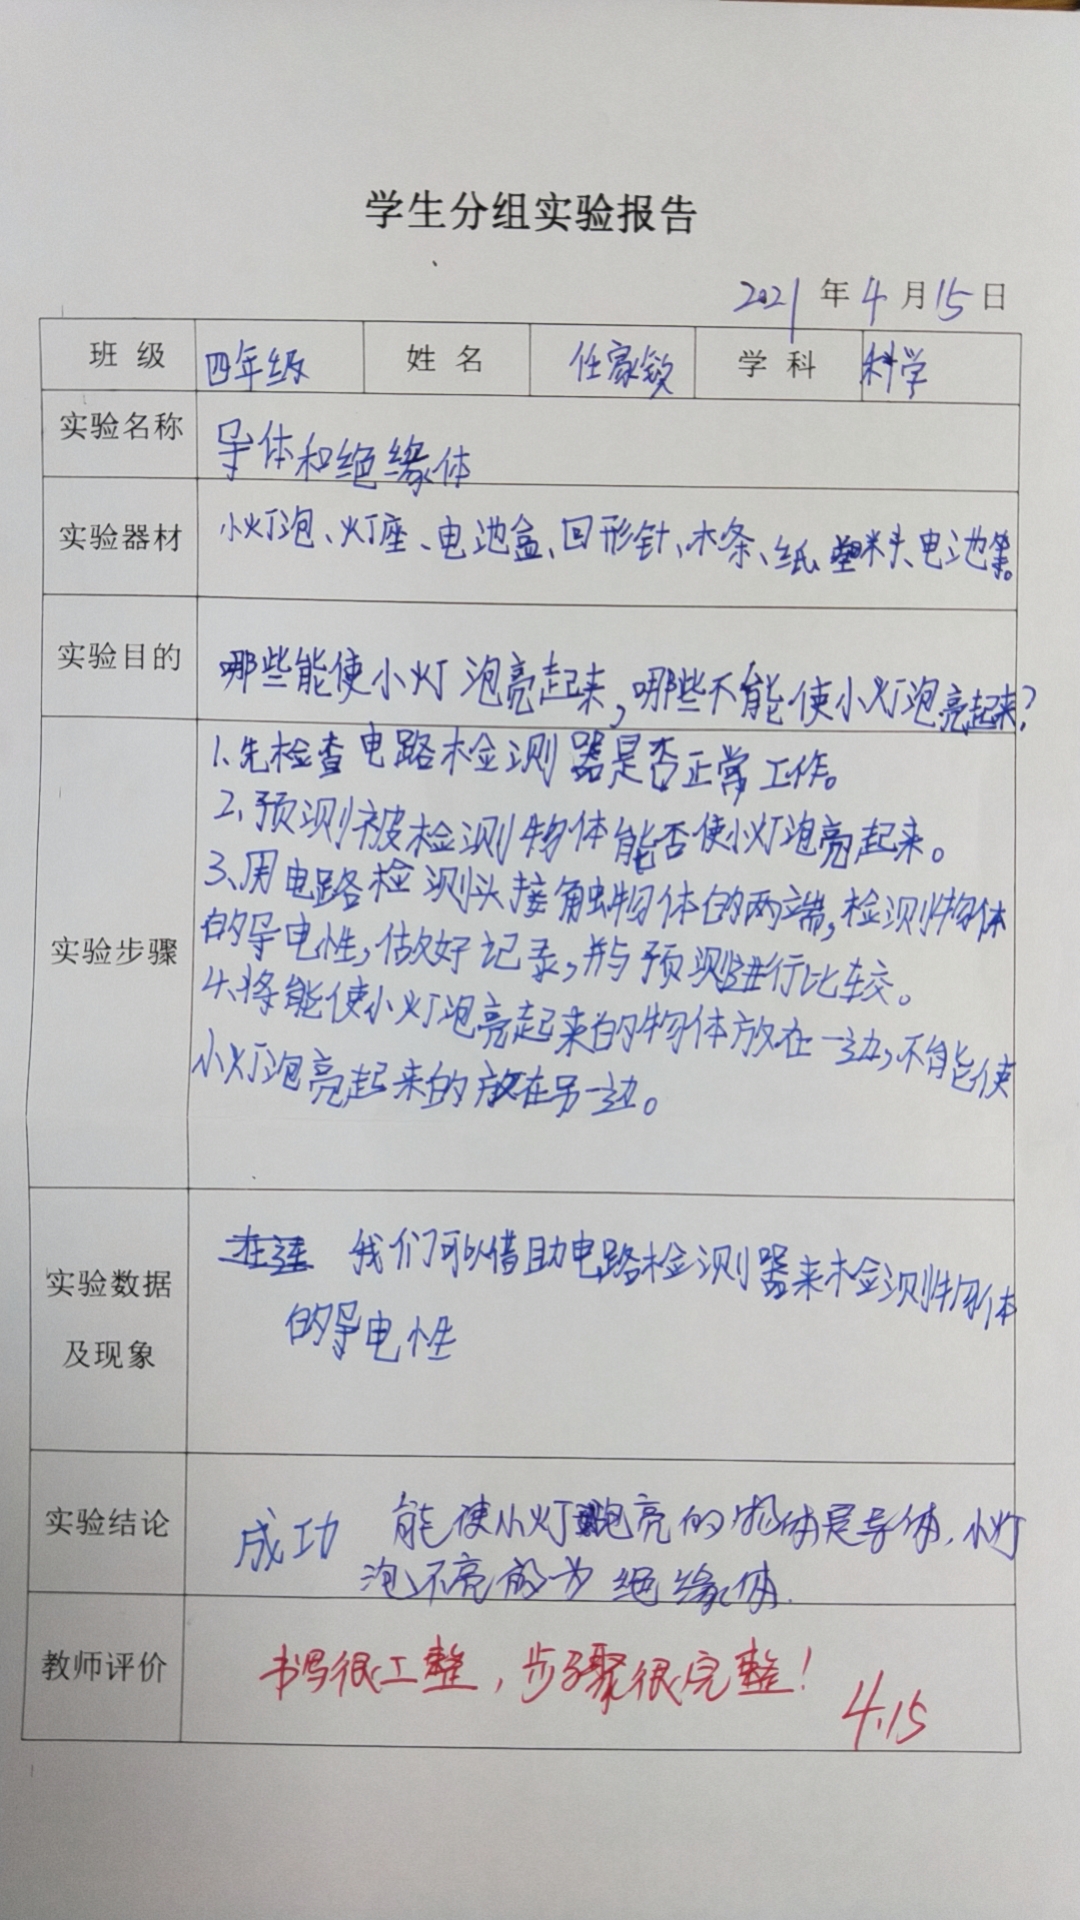 学生分组实验报告
2021年4月15日
班级 四年级 姓名 任家钦 学科 科学
实验名称 导体和绝缘体
实验器材 小灯泡、灯座、电池盒、回形针、木条、纸、塑料头、电池等。
实验目的 哪些能使小灯泡亮起来,哪些不能使小灯泡亮起来?
实验步骤
1.先检查电路检测器是否正常工作。
2.预测被检测物体能否使小灯泡亮起来。
3.用电路检测头接触物体的两端,检测物体
的导电性,做好记录,并与预测进行比较。
4.将能使小灯泡亮起来的物体放在一边,不能使
小灯泡亮起来的放在另一边。
实验数据
及现象
在连 我们可以借助电路检测器来检测物体
的导电性
实验结论 成功 能使小灯泡亮的物体是导体,小灯
泡不亮的为绝缘体.
教师评价 书写很工整,步骤很完整!
4.15